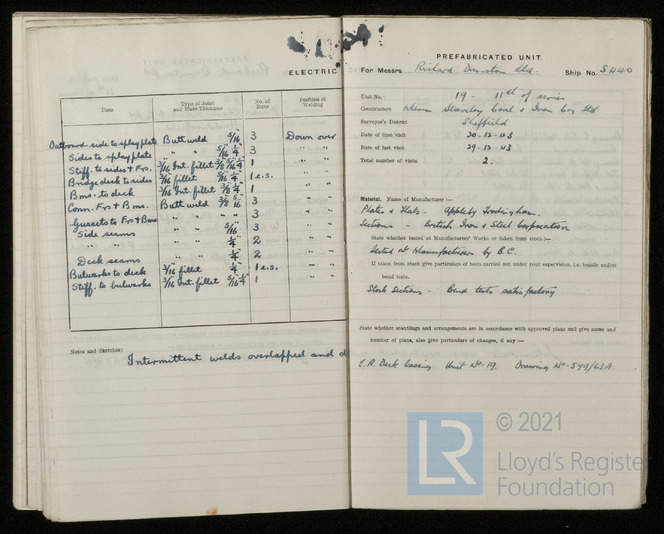 ELECTRIC
Item Type of Joint and Plate Thickness No. of Runs Position of Welding
Outboard side to splay plate Butt weld 5/16 3 Down over
Sides to splay plate " " 5/16 1/4 3 " "
Stiff. to sides + Frs. 3/16 Int. fillet 3/8 5/16 1/4 1 " "
Bridge deck to sides 3/16 fillet 5/16 1/4 1 e.s. " "
Bms. to deck 3/16 Int fillet 3/8 1/4 1 " "
Conn. Frs + Bms. Butt weld 3/8 5/16 3 " "
Gussets to Frs + Bms " " 3 " "
Side seams " " 5/16 3 " "
" " " " 1/4 2 " "
Deck seams " " 1/4 2 " "
Bulwarks to deck 3/16 fillet 1/4 1 e.s. " "
Stiff. to bulwarks 3/16 Int. fillet 5/16 1/4 1 " "
Notes and Sketches:
Intermittent welds overlapped and
PREFABRICATED UNIT.
For Messrs. Richard Dunston Ltd. Ship No. S440
Unit No. 19 - 11th of series
Constructors Staveley Coal & Iron Coy Ltd
Surveyor's District Sheffield
Date of first visit 20.12.43
Date of last visit 29.12.43
Total number of visits 2.
Material. Name of Manufacturer :—
Plates & Flats - Appleby Frodingham.
Sections - British Iron & Steel Corporation
State whether tested at Manufacturers' Works or taken from stock :—
Tested at Manufacturers by B.C.
If taken from stock give particulars of tests carried out under your supervision, i.e. tensile and/or
bend tests.
Stock Sections - Bend tests satisfactory
State whether scantlings and arrangements are in accordance with approved plans and give name and
number of plans, also give particulars of changes, if any :—
E.R. Deck Casing Unit No. 19. Drawing No. 549/63A
LR © 2021
Lloyd's Register
Foundation